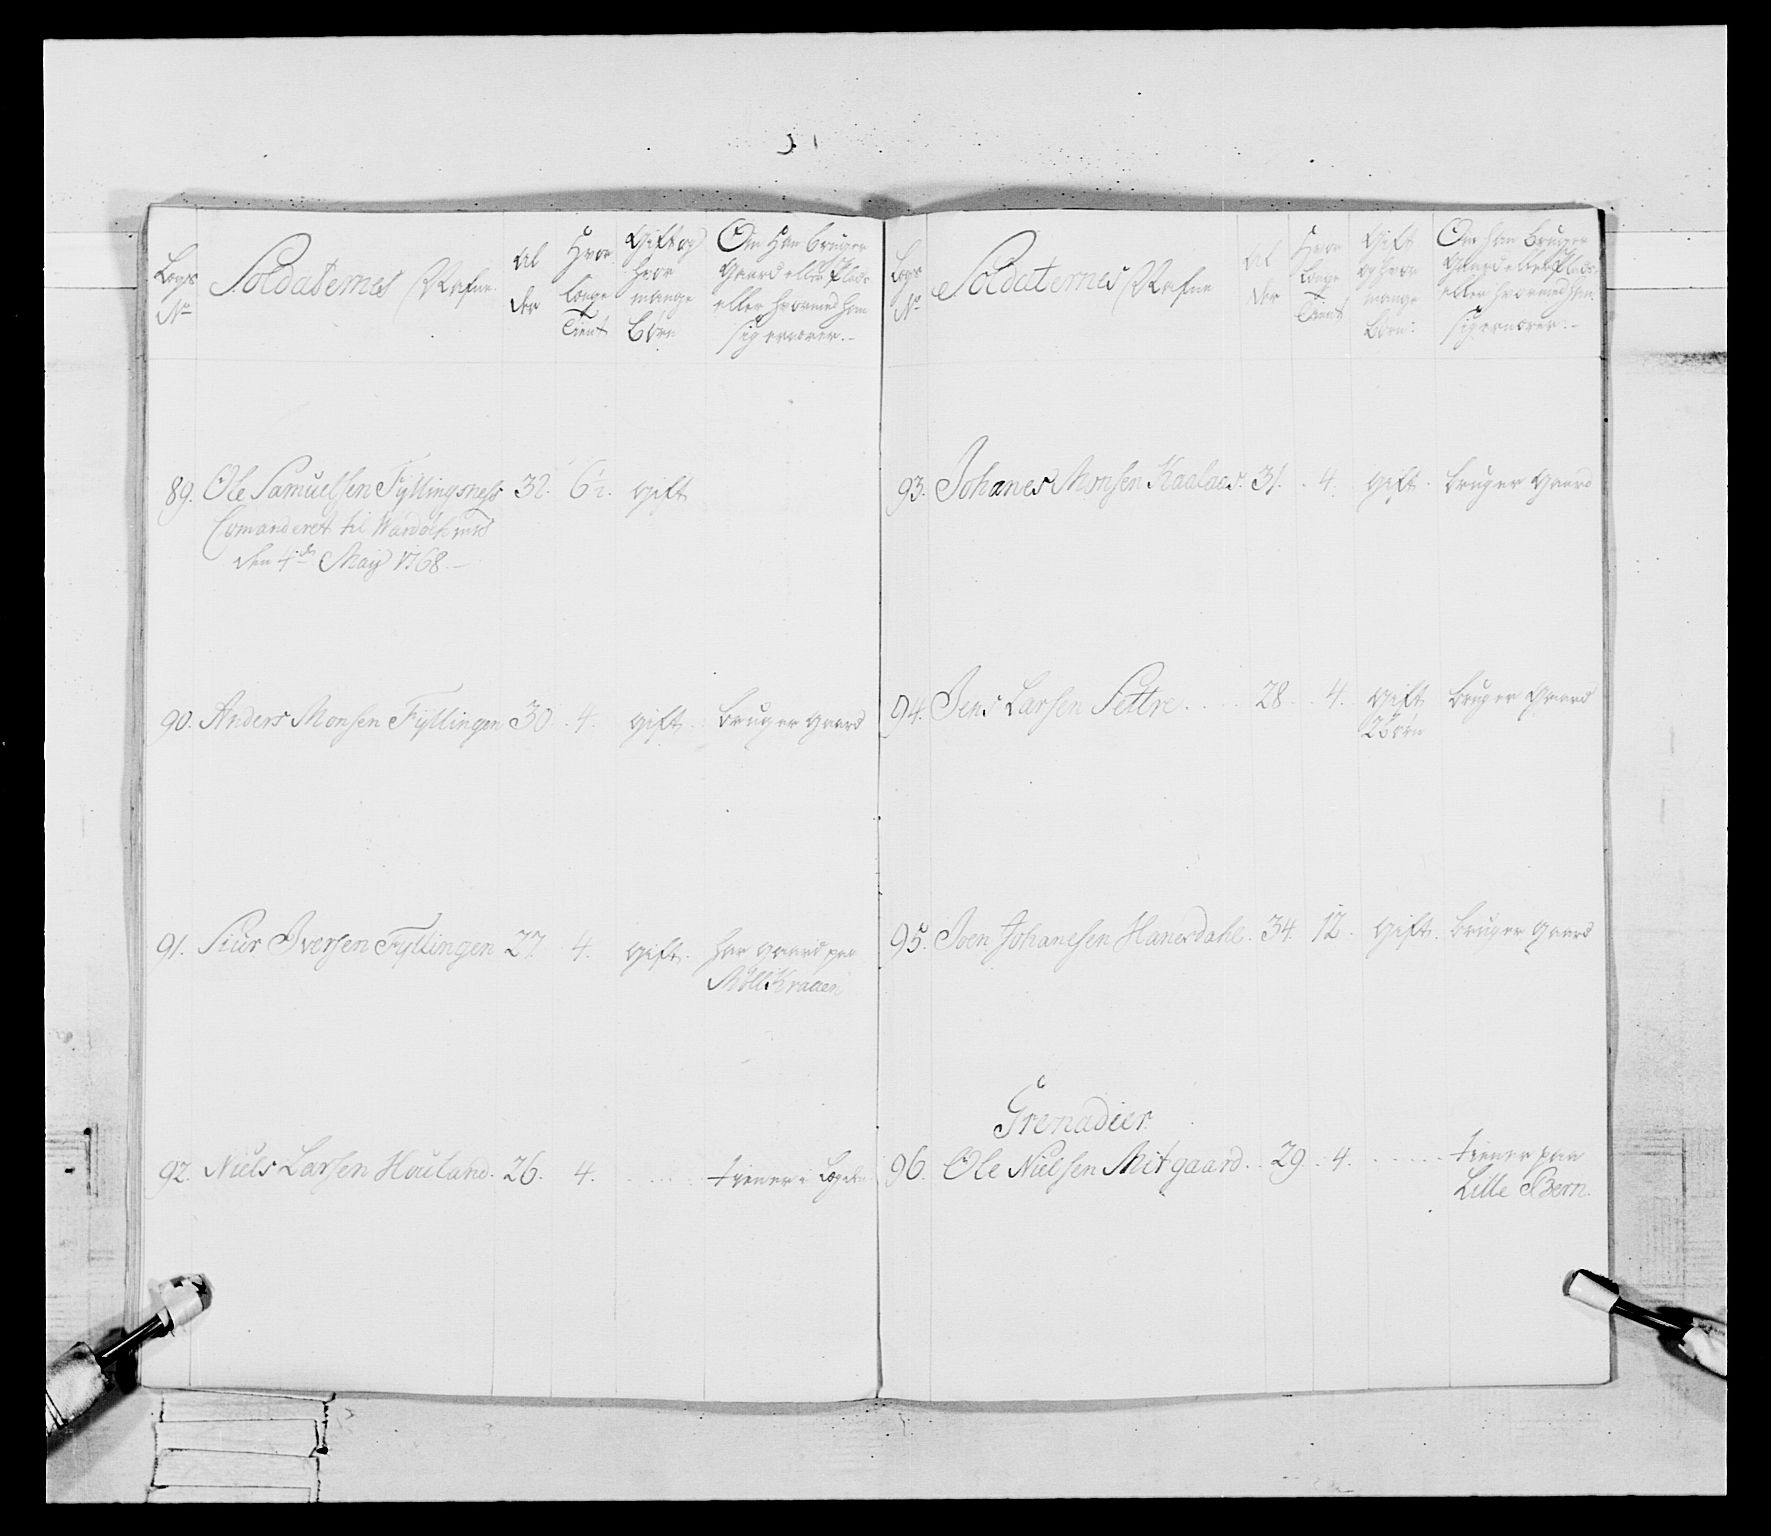 Lægs No
Soldaternes Nafne.
Al der
Hvor længe Tient
Gift og hvor mange Børn
Om Han bruger Gaard eller Plads eller hvormed han sig ernærer.-
89. Ole Samuelsen Fyllingsness 32. 6½. gift
Comanderet til Wardøehuus
den 4de Maij 1768.-
90. Anders Monsen Fyllingen 30. 4. gift. bruger gaard
91. Siur Iversen Fyllingen 27. 4. gift. har gaard paa
Møll Kraaen
92. Niels Larsen Houland. 26. 4. . . . . tiener i Lægden
Lægs No
Soldaternes Nafne
Al der
Hvor længe Tient
Gift og hvor mange Børn:
Om han bruger Gaard eller Plads eller hvormed han sig ernærer:-
93. Johanes Monsen Kaalaas. 31. 4. gift. bruger gaard
94. Jens Larsen Settre . . . . 28. 4. gift bruger gaard
2 børn
95. Joen Johanesen Hanesdahl. 34. 12. gift. bruger gaard
Grenadier.
96. Ole Nielsen Mitgaard. 29. 4. . . . . . tiener paa
Lille Bern.